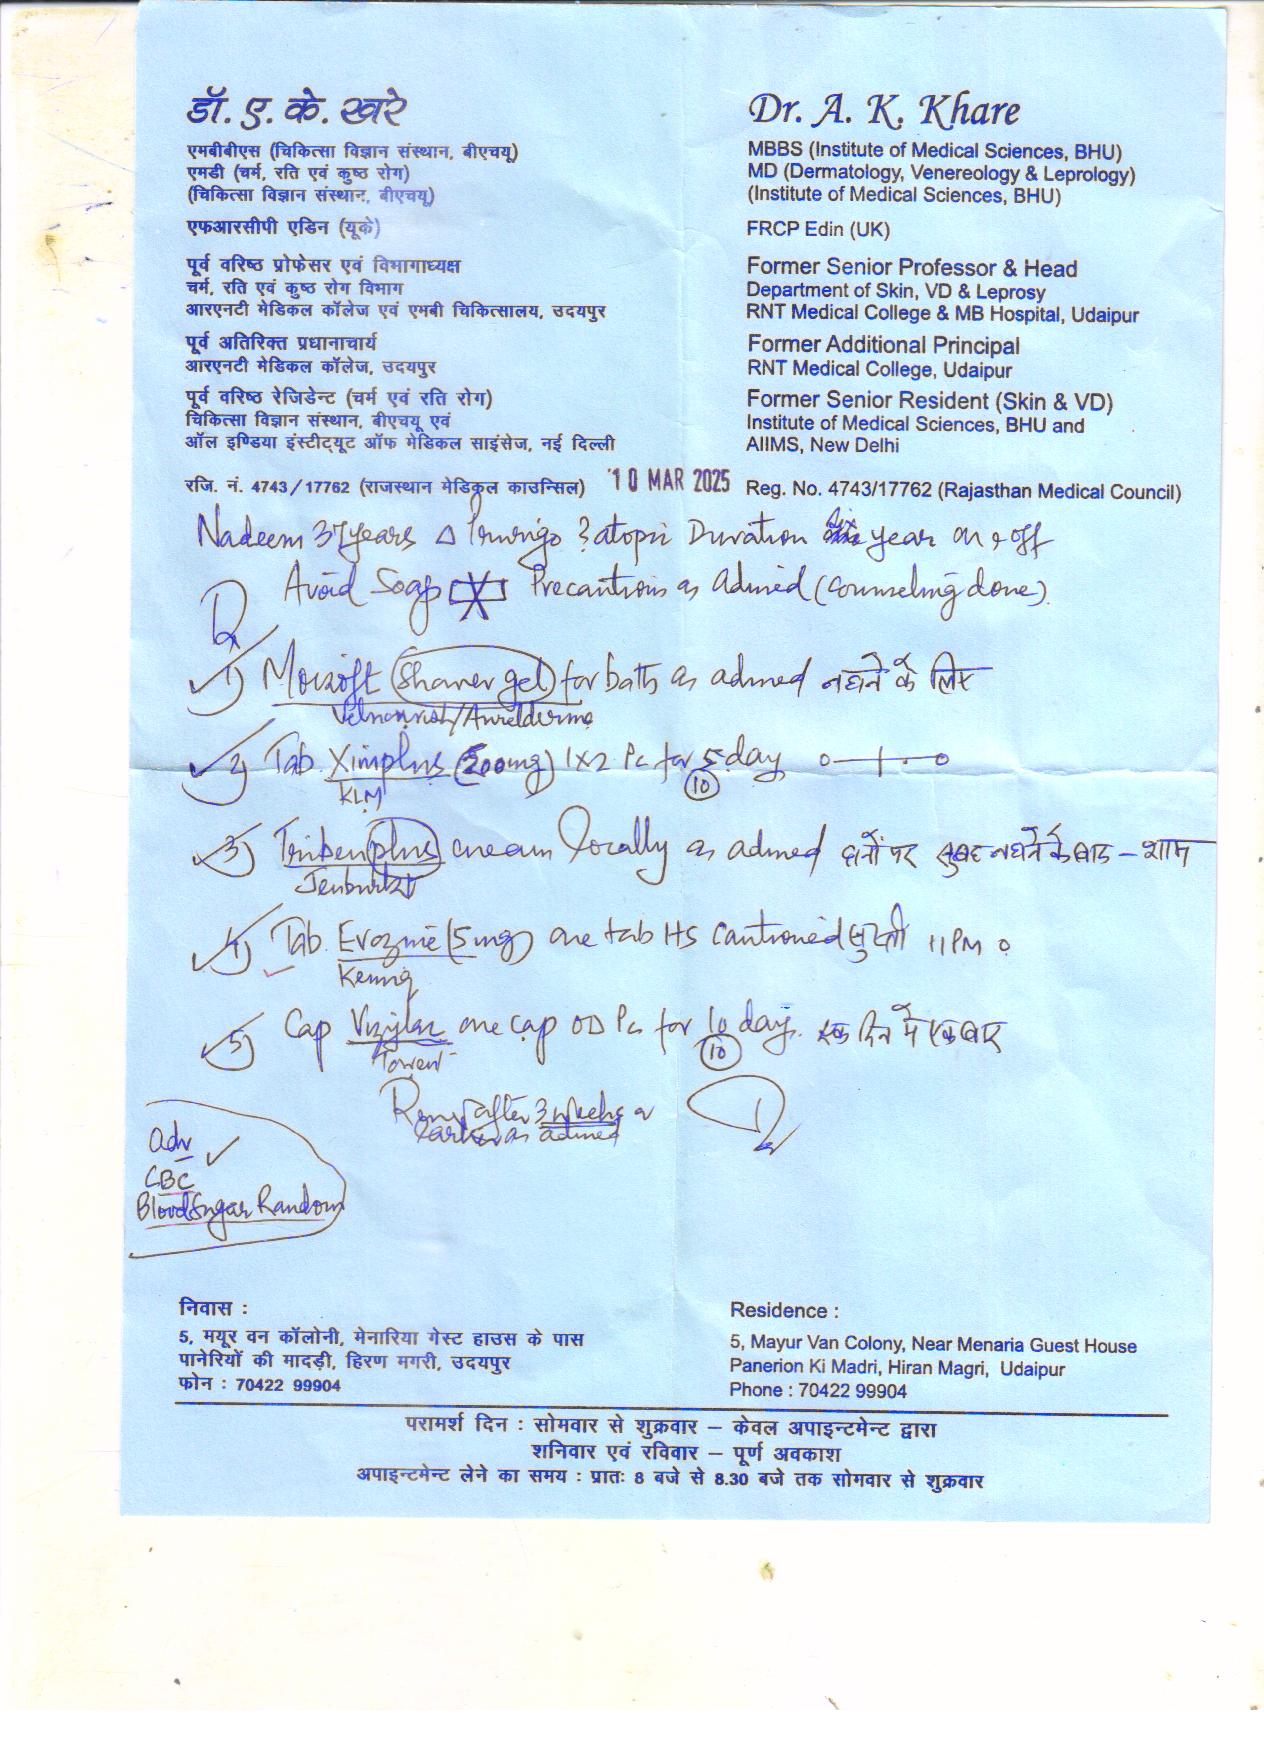 डॉ. ए. के. खरे
एमबीबीएस (चिकित्सा विज्ञान संस्थान, बीएचयू)
एमडी (चर्म, रति एवं कुष्ठ रोग)
(चिकित्सा विज्ञान संस्थान, बीएचयू)
एफआरसीपी एडिन (यूके)
पूर्व वरिष्ठ प्रोफेसर एवं विभागाध्यक्ष
चर्म, रति एवं कुष्ठ रोग विभाग
आरएनटी मेडिकल कॉलेज एवं एमबी चिकित्सालय, उदयपुर
पूर्व अतिरिक्त प्रधानाचार्य
आरएनटी मेडिकल कॉलेज, उदयपुर
पूर्व वरिष्ठ रेजिडेन्ट (चर्म एवं रति रोग)
चिकित्सा विज्ञान संस्थान, बीएचयू एवं
ऑल इण्डिया इंस्टीट्यूट ऑफ मेडिकल साइंसेज, नई दिल्ली
रजि. नं. 4743/17762 (राजस्थान मेडिकल काउन्सिल)
Dr. A. K. Khare
MBBS (Institute of Medical Sciences, BHU)
MD (Dermatology, Venereology & Leprology)
(Institute of Medical Sciences, BHU)
FRCP Edin (UK)
Former Senior Professor & Head
Department of Skin, VD & Leprosy
RNT Medical College & MB Hospital, Udaipur
Former Additional Principal
RNT Medical College, Udaipur
Former Senior Resident (Skin & VD)
Institute of Medical Sciences, BHU and
AIIMS, New Delhi
10 MAR 2025
Reg. No. 4743/17762 (Rajasthan Medical Council)
Nadeem 37 years Δ Prurigo ? atopic Duration six year on & off
Avoid Soap Precautions as advised (counseling done).
1) Moizoft Shower gel for bath as advised नहाने के लिए
2) Tab. Ximplus (200mg) 1x2 Pc for 5 day 0
KLM 10
3) Triben plus cream locally as advised दानों पर सुबह नहाने के बाद - शाम
Jenburkt
4) Tab. (5mg) one tab HS cautioned सुस्ती 11 PM
5) Cap one cap OD Pc for 10 day. एक दिन में एक बार
10
after 3 weeks
as advised
Adv
CBC
Blood Sugar Random
निवास :
5, मयूर वन कॉलोनी, मेनारिया गेस्ट हाउस के पास
पानेरियों की मादड़ी, हिरण मगरी, उदयपुर
फोन : 70422 99904
Residence :
5, Mayur Van Colony, Near Menaria Guest House
Panerion Ki Madri, Hiran Magri, Udaipur
Phone : 70422 99904
परामर्श दिन : सोमवार से शुक्रवार – केवल अपाइन्टमेन्ट द्वारा
शनिवार एवं रविवार – पूर्ण अवकाश
अपाइन्टमेन्ट लेने का समय : प्रातः 8 बजे से 8.30 बजे तक सोमवार से शुक्रवार